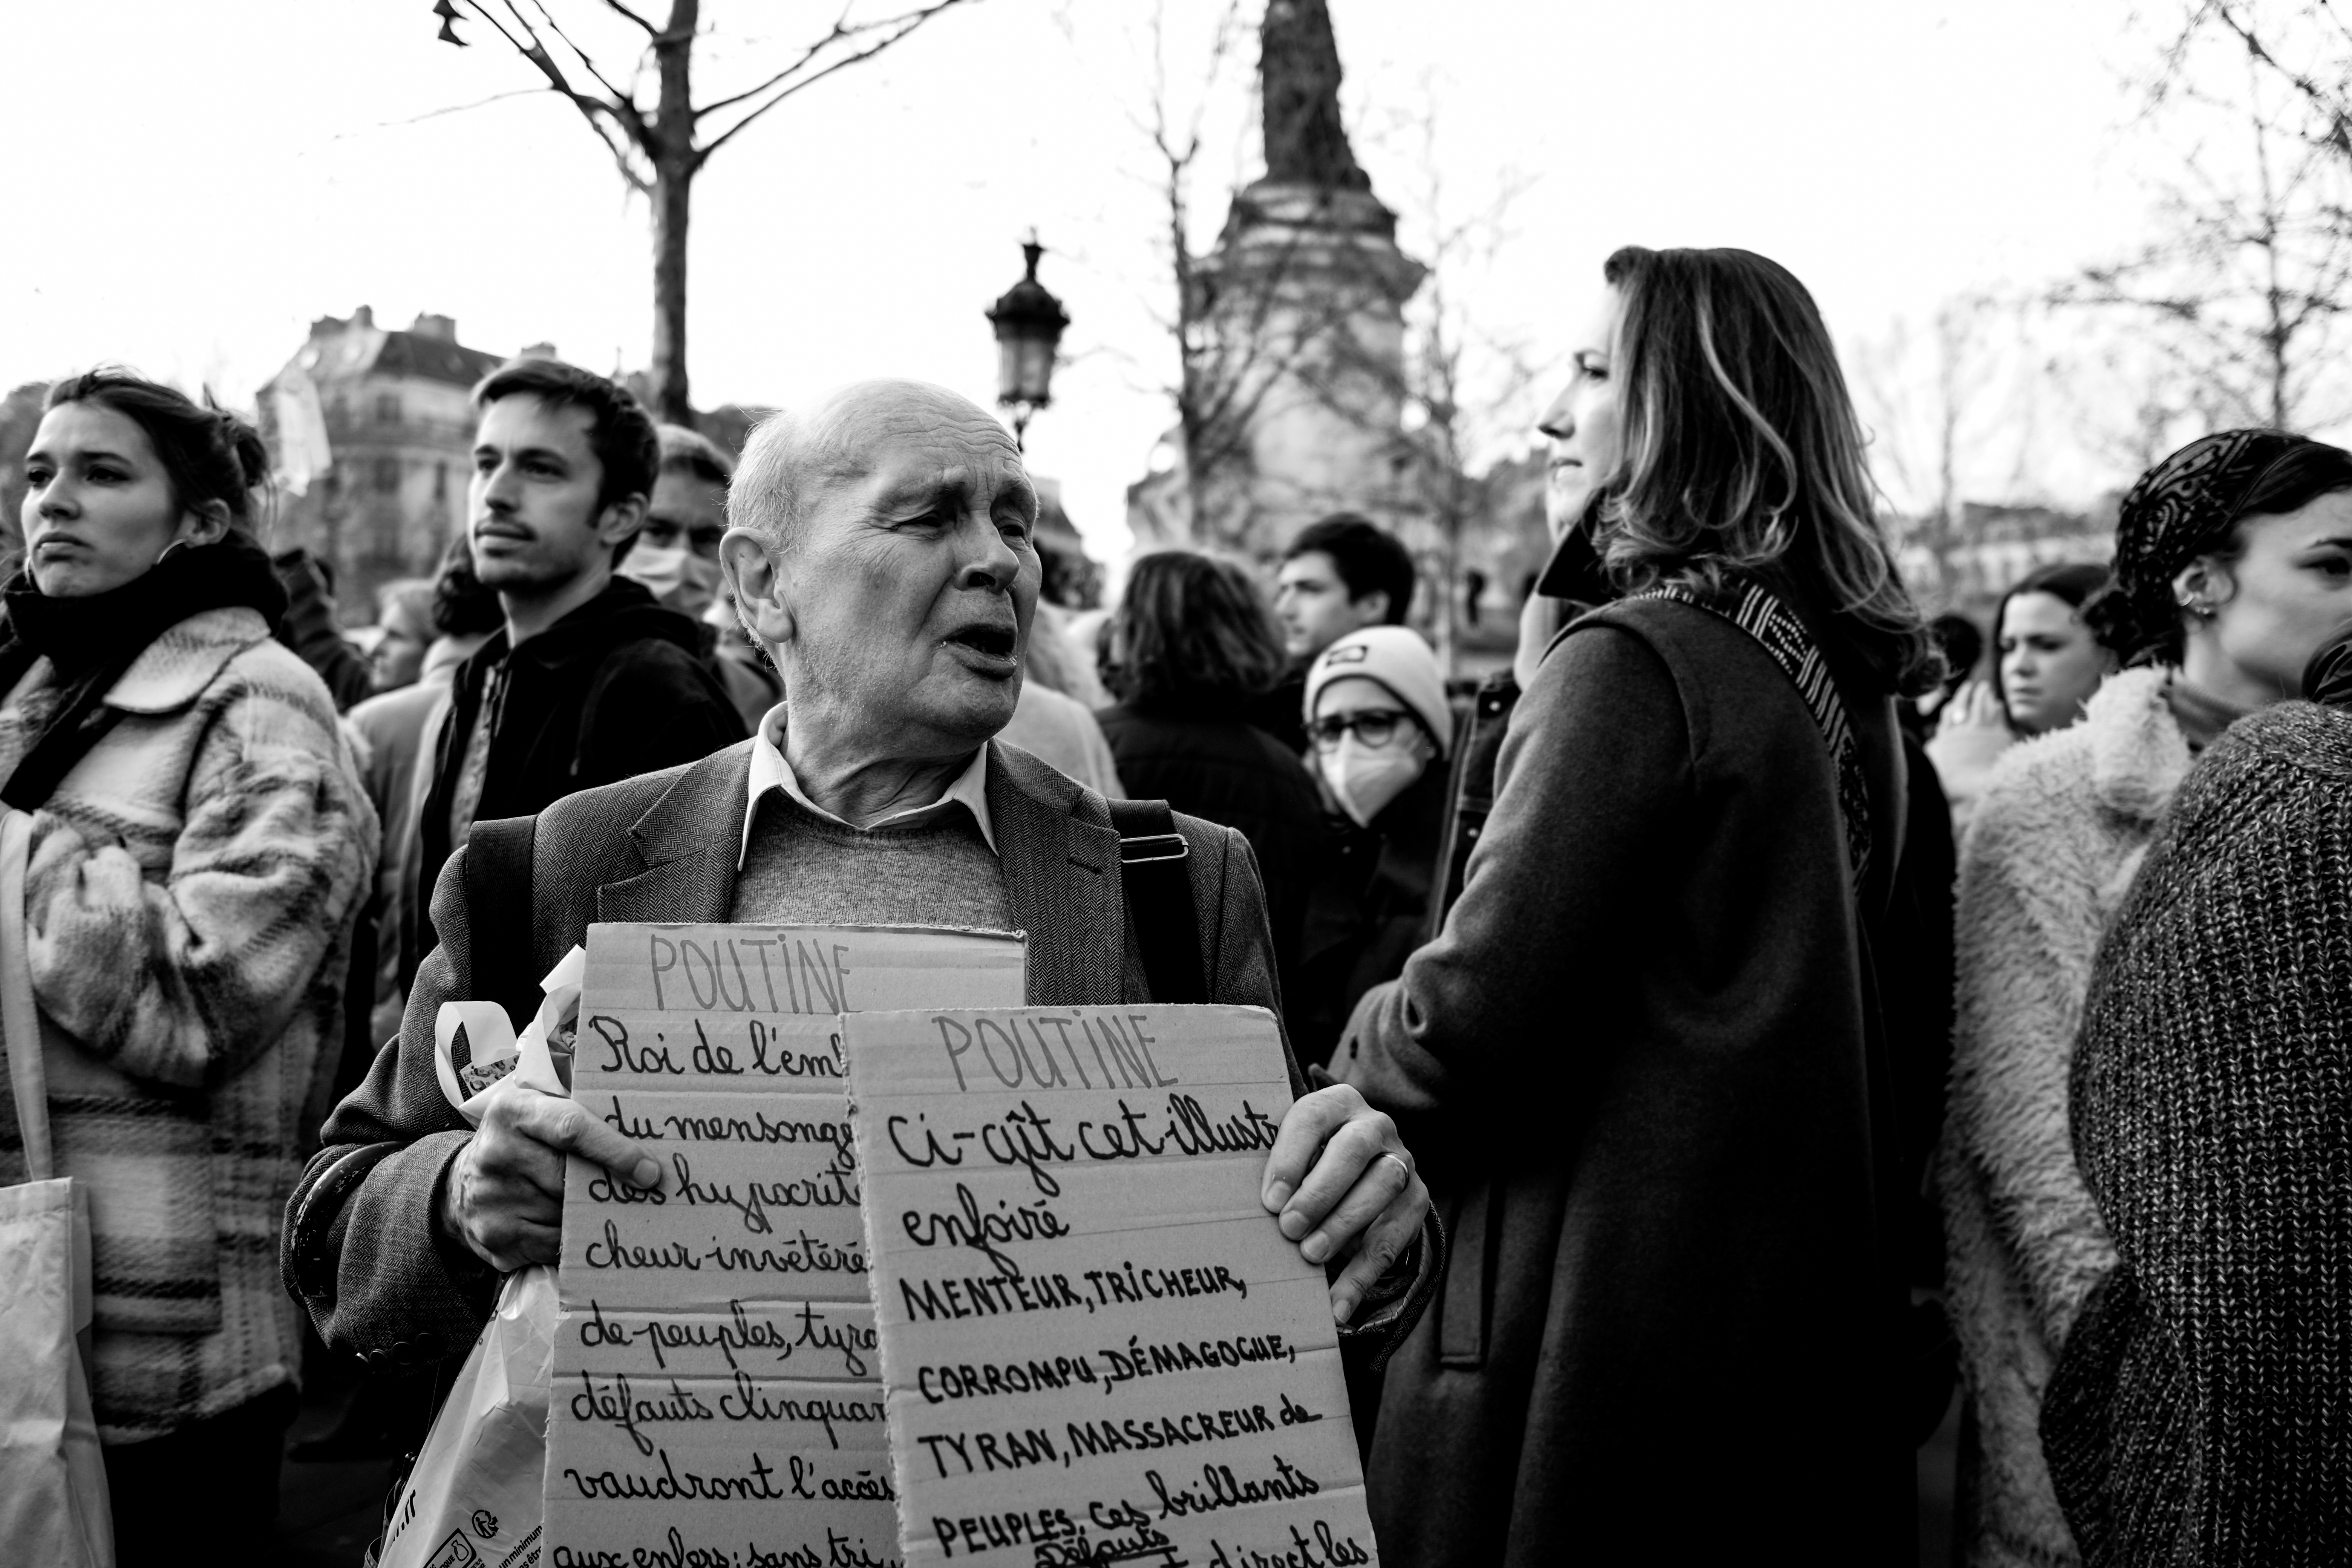 POUTINE
Roi de l'em
du mensonge
des hypocrit
cheur invétéré
de peuples, tyra
défauts clinquan
vaudront l'accès
aux enfers: sans tri
POUTINE
Ci-gît cet illustr
enfoiré
MENTEUR, TRICHEUR,
CORROMPU, DÉMAGOGUE,
TYRAN, MASSACREUR de
PEUPLES. Ces brillants
Défauts
direct les
un minimum